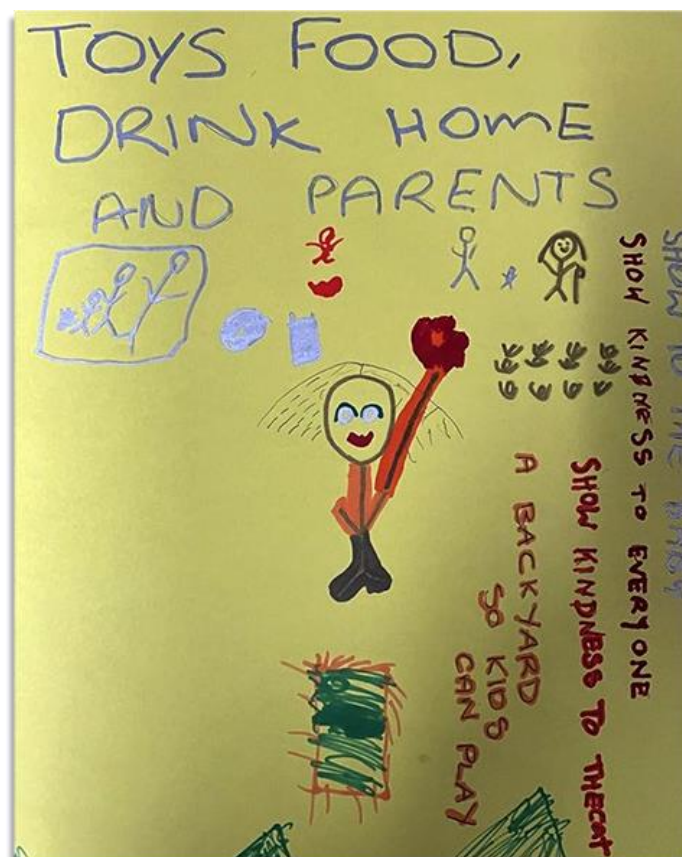 TOYS FOOD,
DRINK HOME
AND PARENTS
SHOW TO THE BABY
SHOW KINDNESS TO EVERYONE
SHOW KINDNESS TO THECAT
A BACKYARD
SO KIDS
CAN PLAY